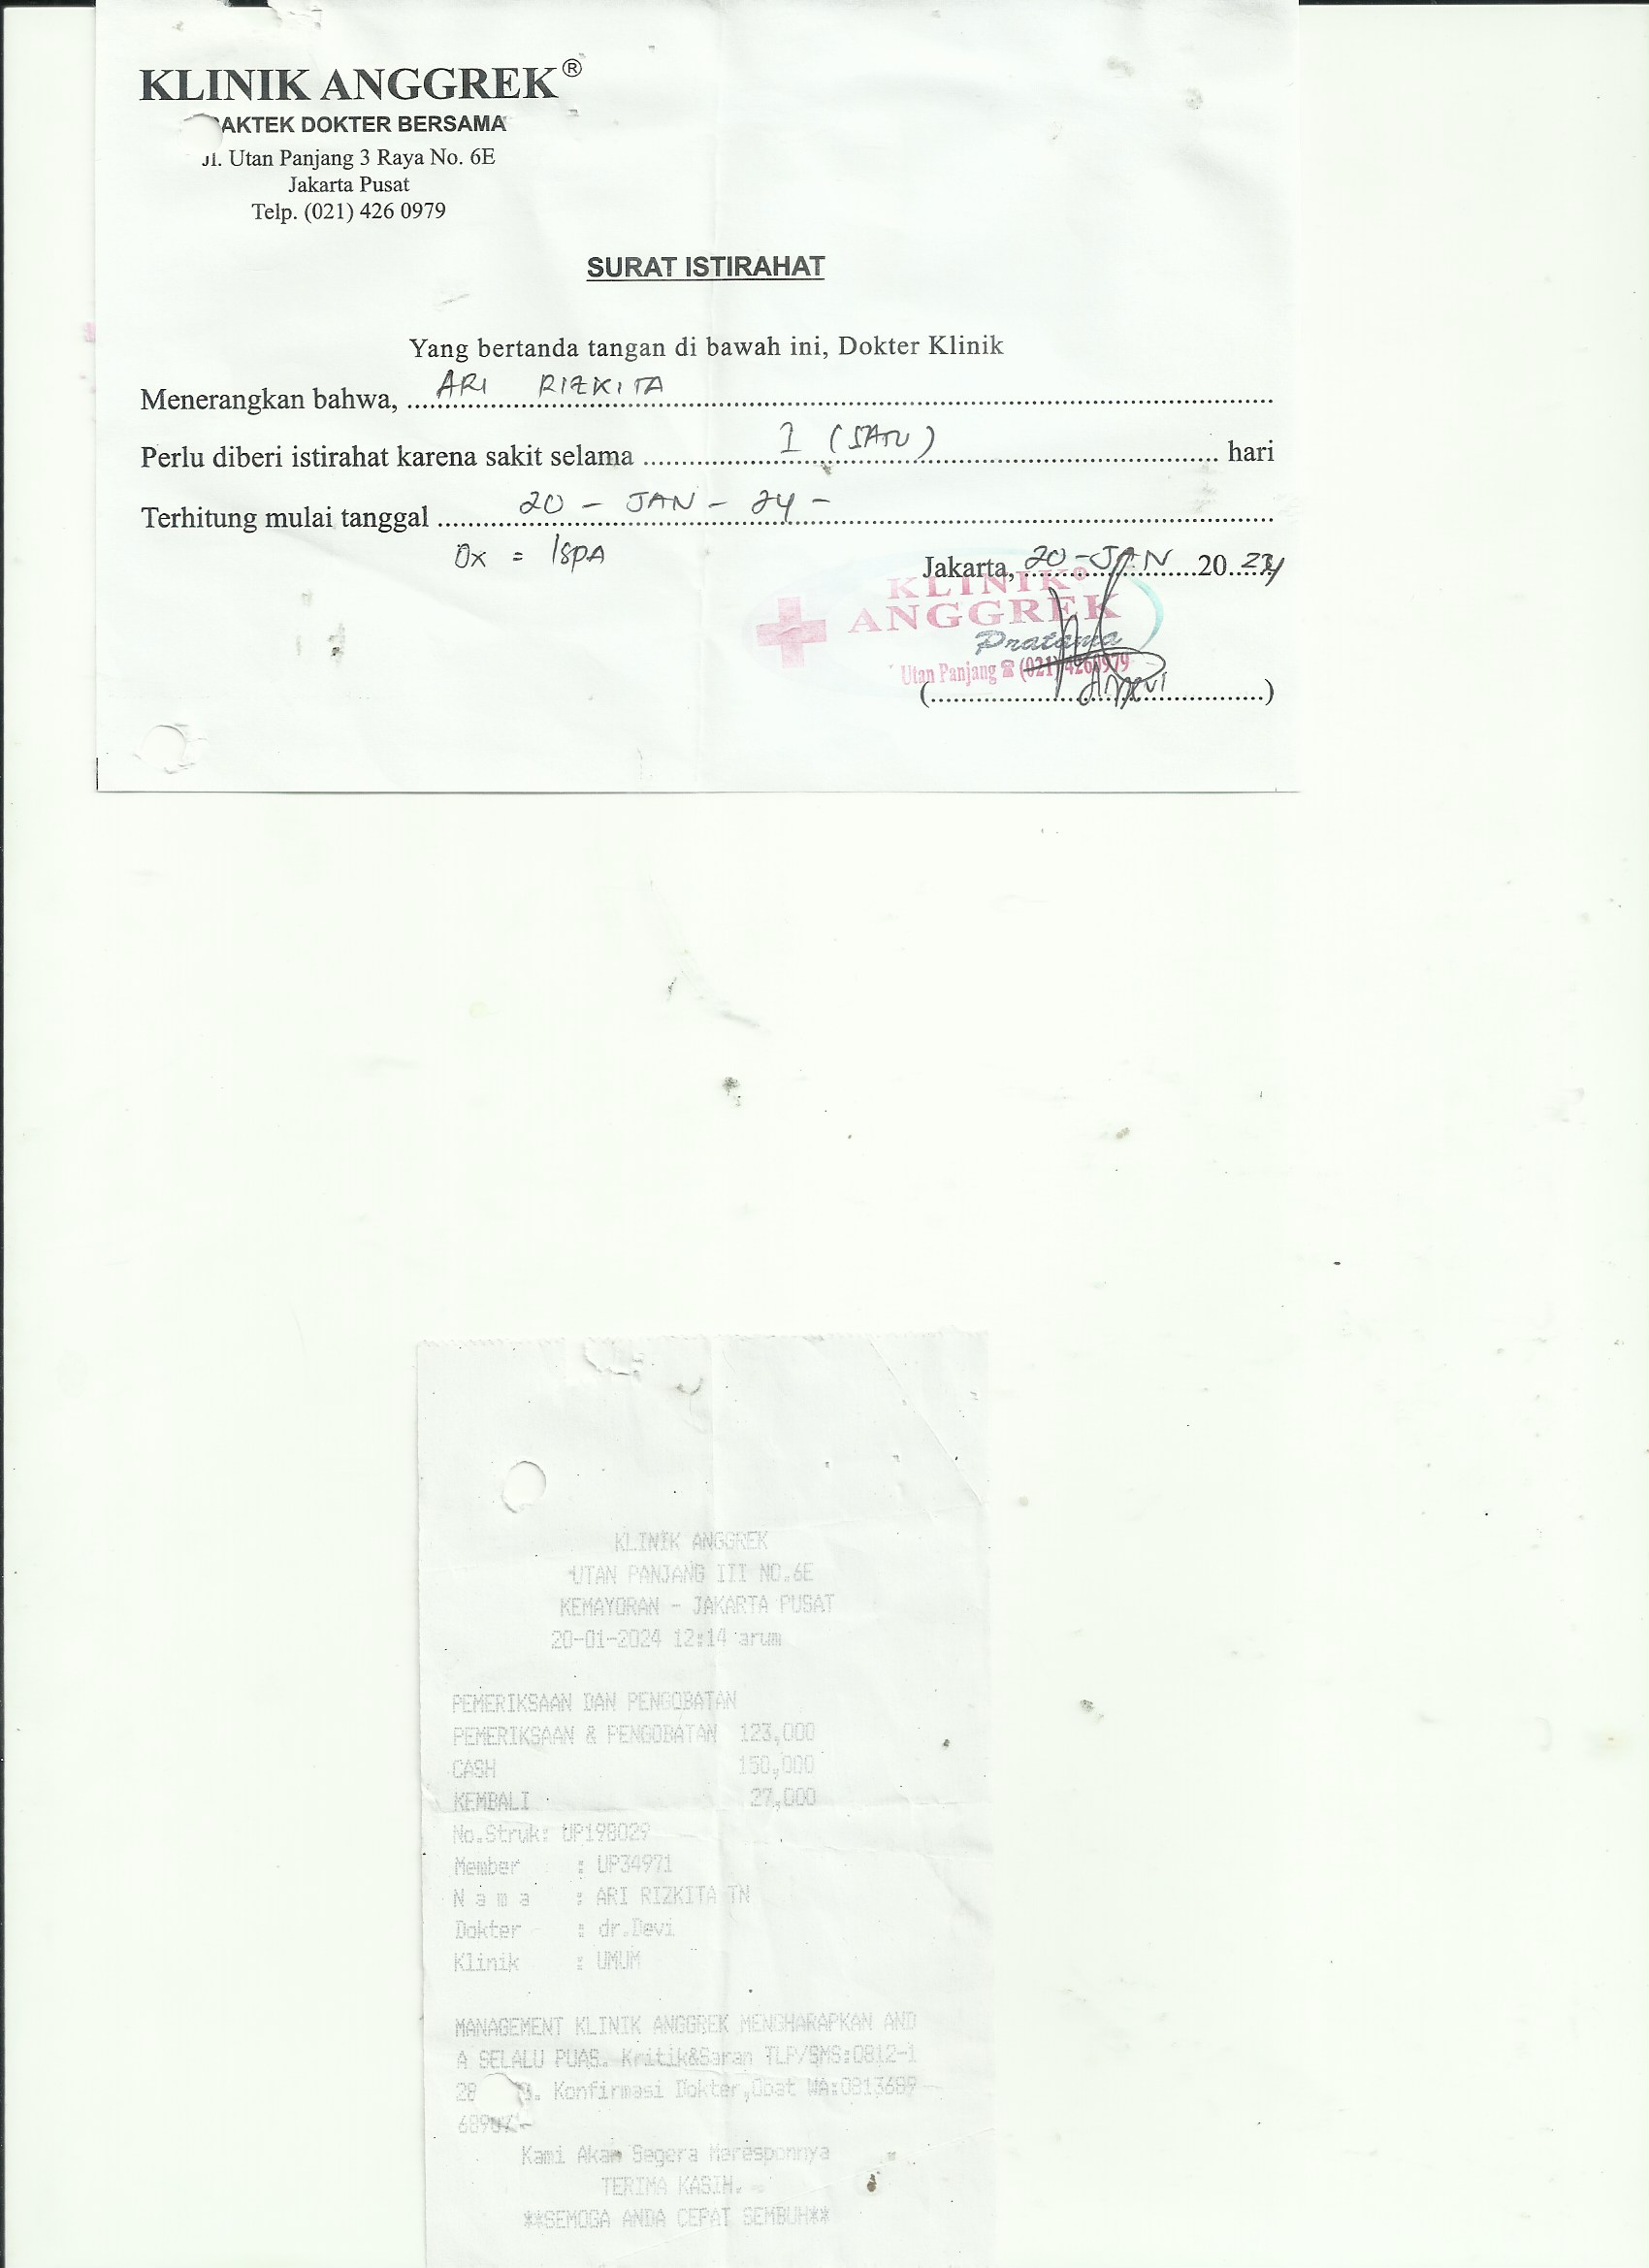 KLINIK ANGGREK®
AKTEK DOKTER BERSAMA
Jl. Utan Panjang 3 Raya No. 6E
Jakarta Pusat
Telp. (021) 426 0979
SURAT ISTIRAHAT
Yang bertanda tangan di bawah ini, Dokter Klinik
Menerangkan bahwa, ARI RIZKITA
Perlu diberi istirahat karena sakit selama 1 (SATU) hari
Terhitung mulai tanggal 20 - JAN - 24 -
Dx = ISPA
Jakarta, 20 - JAN 20 24
KLINIK®
ANGGREK
Pratama
Utan Panjang ☎ (021) 4260979
KLINIK ANGGREK
UTAN PANJANG III NO.6E
KEMAYORAN - JAKARTA PUSAT
20-01-2024 12:14 arum
PEMERIKSAAN DAN PENGOBATAN
PEMERIKSAAN & PENGOBATAN 123,000
CASH 150,000
KEMBALI 27,000
No.Struk: UP198029
Member : UP34971
N a m a : ARI RIZKITA TN
Dokter : dr.Devi
Klinik : UMUM
MANAGEMENT KLINIK ANGGREK MENGHARAPKAN AND
A SELALU PUAS. Kritik&Saran TLP/SMS:0812-1
28 Konfirmasi Dokter,Obat WA:0813689
Kami Akan Segera Meresponnya
TERIMA KASIH.
**SEMOGA ANDA CEPAT SEMBUH**